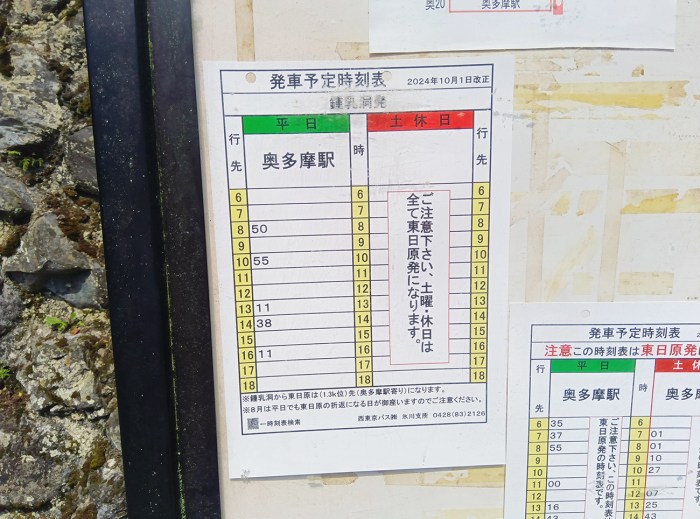 奥20 奥多摩駅
発車予定時刻表 2024年10月1日改正
鍾乳洞発
行先 平日 時 土休日 行先
奥多摩駅
6 6 6
7 7 7
8 50 8 8
9 9 9
10 55 10 10
11 11 11
12 12 12
13 11 13 13
14 38 14 14
15 15 15
16 11 16 16
17 17 17
18 18 18
ご注意下さい、土曜・休日は
全て東日原発になります。
※鍾乳洞から東日原は(1.3k位)先(奥多摩駅寄り)になります。
※8月は平日でも東日原の折返になる日が御座いますのでご注意ください。
←時刻表検索 西東京バス㈱ 氷川支所 0428(83)2126
発車予定時刻表
注意この時刻表は東日原発
行先 平日 時 土休
奥多摩駅 奥多摩
6 35 6
7 37 7 01
8 55 8 01
9 9 10
10 10 27
11 00 11
12 12 07
13 16 13 25
14 43 14 43
ご注意下さい、この時刻表は
東日原発の時刻表です。